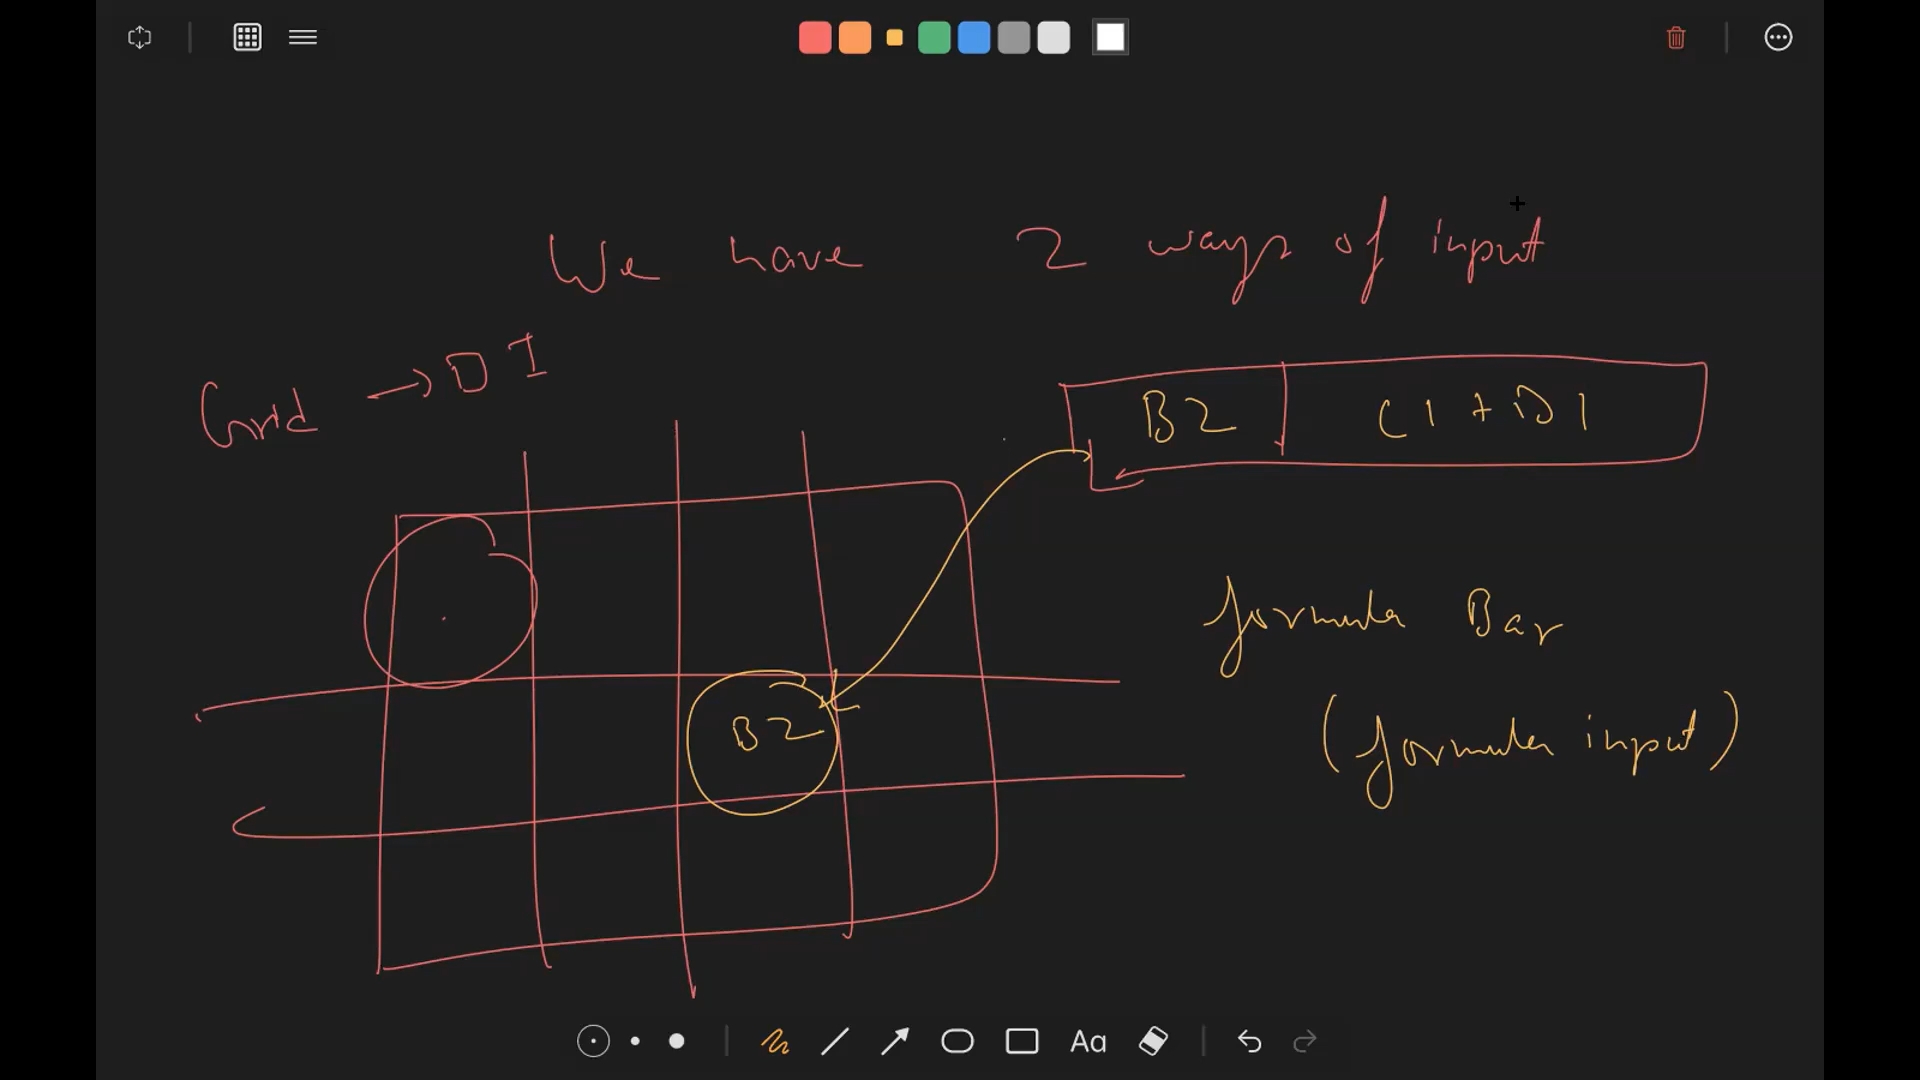 We have 2 ways of input
Grid → D I
B2 C1 + D1
B2
formula Bar
(formula input)
Aa